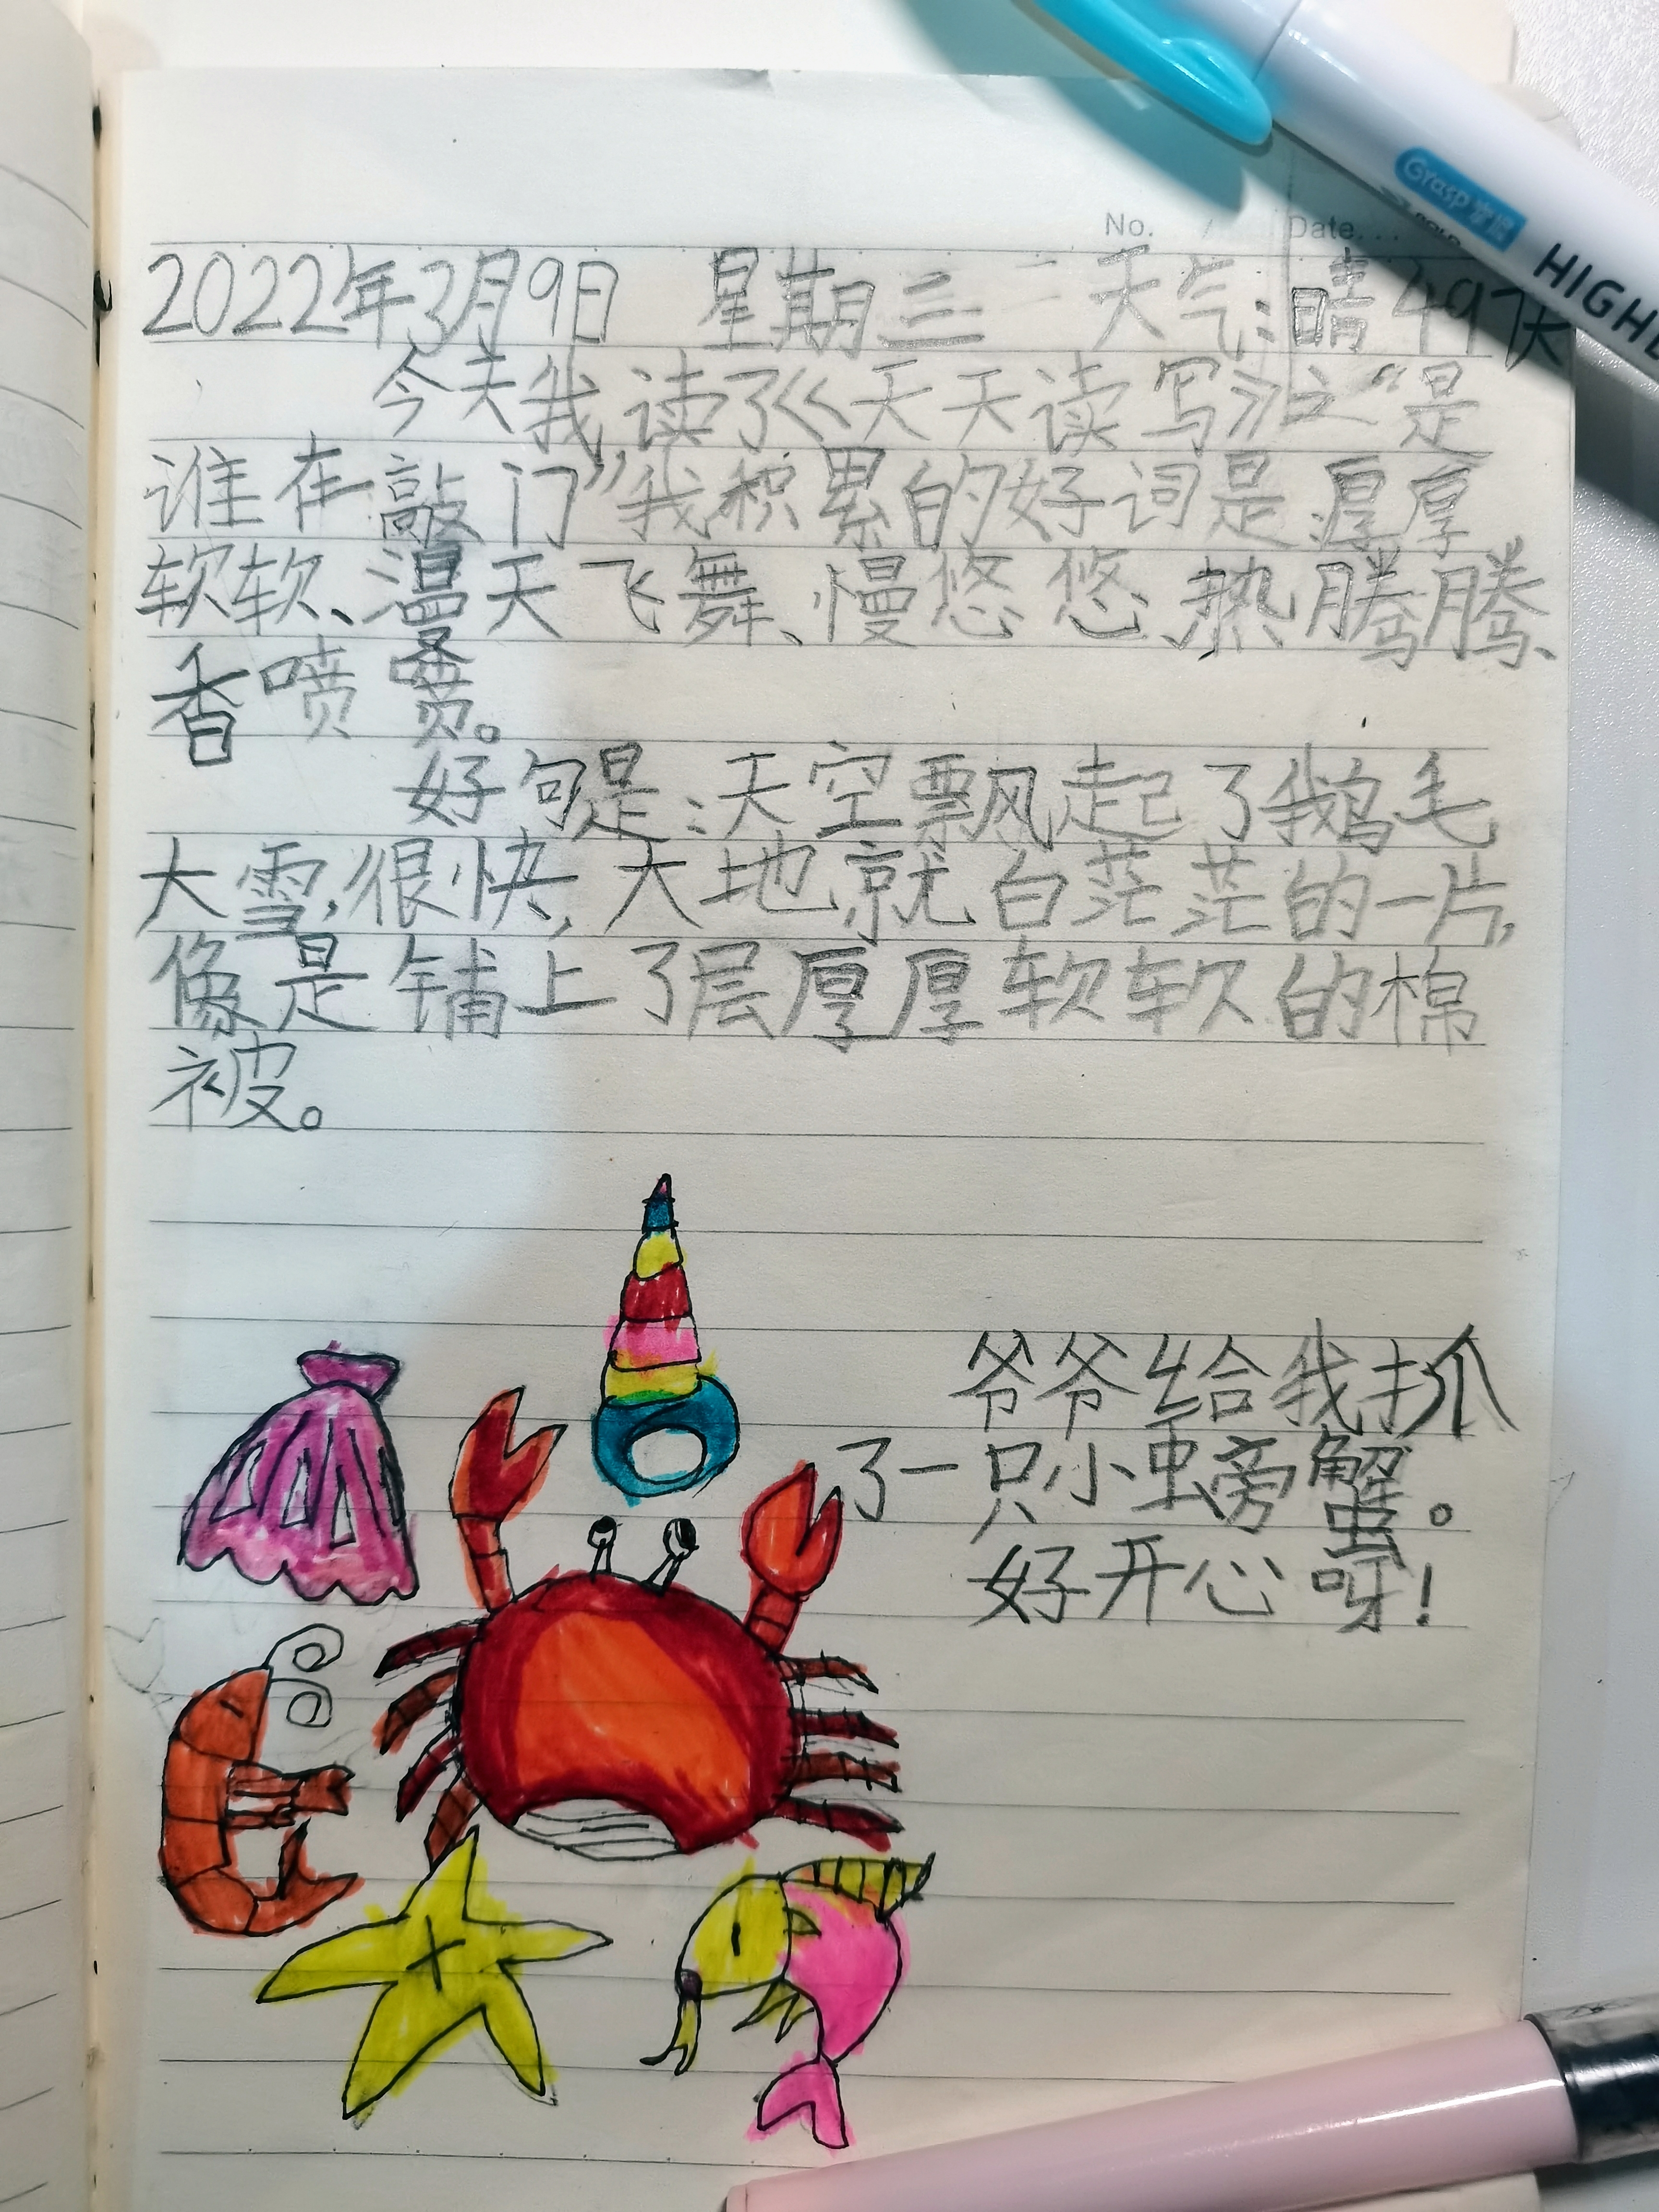 No. Date.
Grasp
HIGHL
2022年3月9日 星期三 天气:晴 49伏
今天我读了《天天读写》之“是
谁在敲门”我积累的好词是:厚厚
软软、漫天飞舞、慢悠悠、热腾腾、
香喷喷。
好句是:天空飘起了鹅毛
大雪,很快,大地就白茫茫的一片,
像是铺上了层厚厚软软的棉
被。
爷爷给我抓
了一只小螃蟹。
好开心呀!